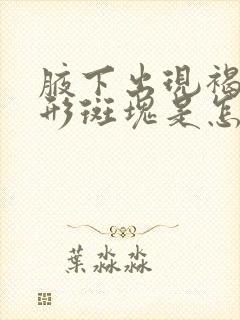 腋下出現褐
形斑塊是怎
葉淼淼